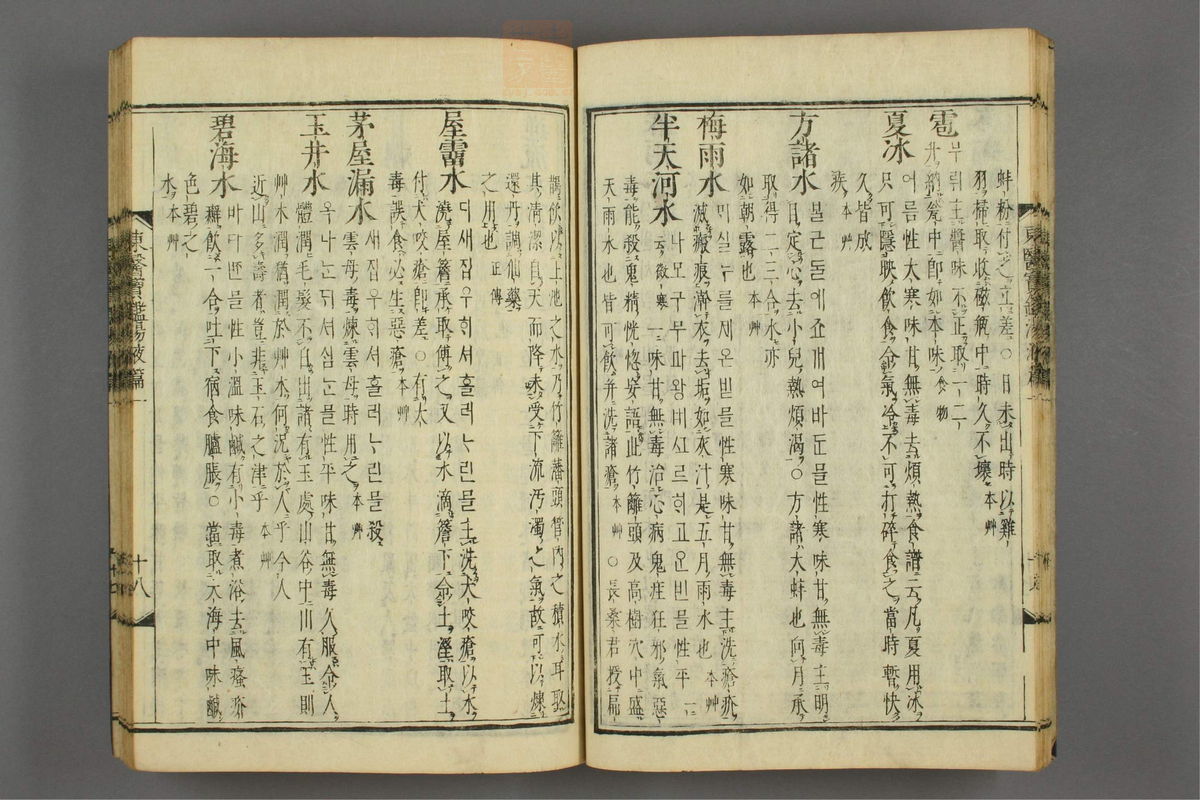 蚌粉付之立差○日未出時以雞
羽掃取收磁瓶中時久不壞本艸
雹무뤼主醬味不正取一二
升納瓮中卽如本味食物
夏冰어름性大寒味甘無毒去煩熱食譜云凡夏用冰
只可隱映飮食令氣冷不可打碎食之當時暫快
久皆成
疾本艸
方諸水
目定心去小兒熱煩渴○方諸大蚌也向月承
取得二三合水亦
如朝露也本艸
梅雨水性寒味甘無毒主洗瘡疥
滅瘢痕澣衣去垢如灰汁是五月雨水也本艸
半天河水性平一云
微寒味甘無毒治心病鬼疰狂邪氣惡
毒能殺鬼精恍惚妄語此竹籬頭及高樹穴中盛
天雨水也皆可飮幷洗諸瘡本艸○長桑君授扁
鵲飮以上池之水乃竹籬藩頭管內之積水耳取
其淸潔自天而降未受下流汚濁之氣故可以煉
還丹調仙藥
之用也正傳
屋霤水主洗犬咬瘡以水
澆屋簷承取傅之又以水滴簷下令土濕取土
付犬咬瘡卽差○有大
毒誤食必生惡瘡本艸
茅屋漏水새집우희셔흘러ᄂᆞ린믈殺
雲母毒煉雲母時用之本艸
玉井水性平味甘無毒久服令人
體潤毛髮不白出諸有玉處山谷中山有玉則
艸木潤猶潤於艸木何況於人乎今人
近山多壽者豈非玉石之津乎本艸
碧海水性小溫味鹹有小毒煮浴去風瘙疥
癬飮一合吐下宿食臚脹○當取大海中味鹹
色碧之
水本艸
東醫寶鑑湯液篇一
十八